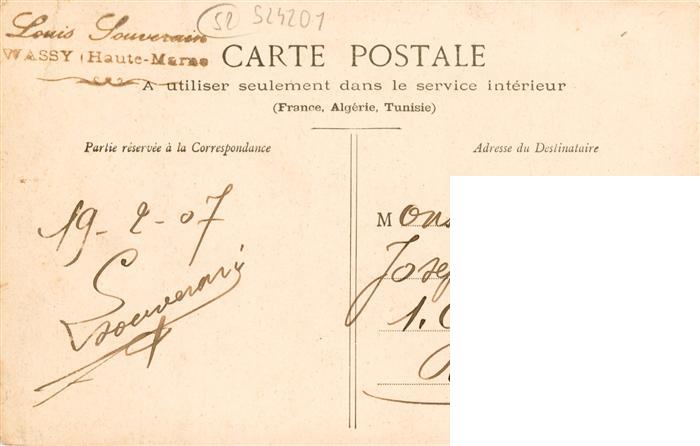 Louis Souverain
WASSY (Haute-Marne
52 524201
CARTE POSTALE
A utiliser seulement dans le service intérieur
(France, Algérie, Tunisie)
Partie réservée à la Correspondance
19-2-07
Souverain
Adresse du Destinataire
Mons
Josep
1.